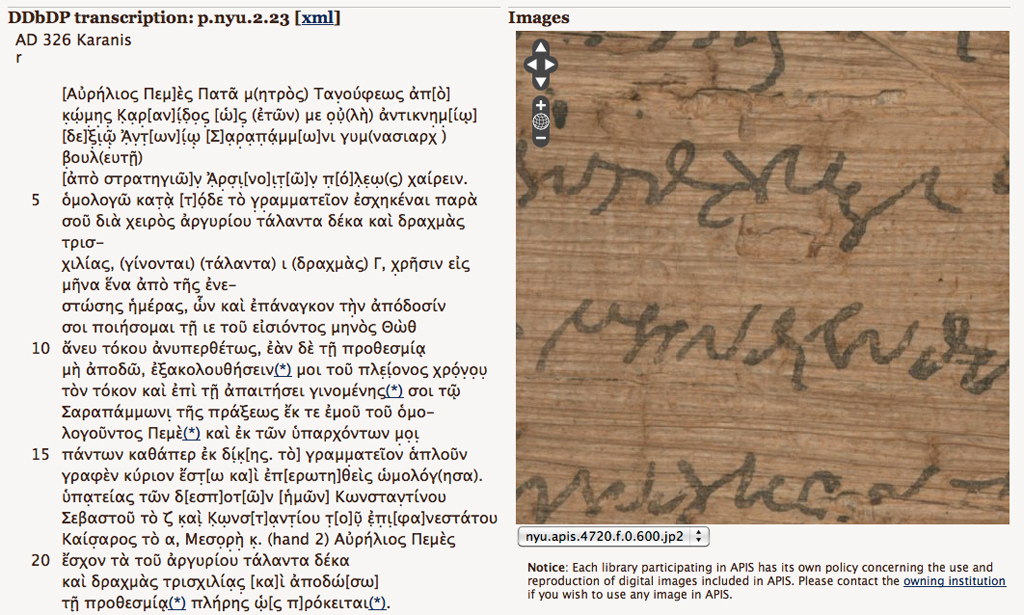 DDbDP transcription: p.nyu.2.23 [xml]
AD 326 Karanis
r
[Αὐρήλιος Πεμ]ὲς Πατᾶ μ(ητρὸς) Ταν̣ούφεως ἀπ[ὸ]
κ̣ώ̣μης Κ̣α̣ρ[αν]ί̣δ̣ο̣ς [ὡ]ς (ἐτῶν) με ο̣ὐ̣(λὴ) ἀντικνημ̣[ίῳ]
[δε]ξ̣ι̣ῷ̣ Ἀ̣ν̣τ̣[ων]ί̣ῳ [Σ]α̣ρ̣α̣π̣ά̣μμ[ω]νι γυμ(νασιαρχ )
β̣ουλ(ευτῇ)
[ἀπὸ στρατηγιῶ]ν̣ Ἀ̣ρσι̣[νο]ι̣τ̣[ῶ]ν̣ π[ό]λ̣ε̣ω̣(ς) χαίρειν.
5 ὁμολογῶ κατὰ̣ [τ]ό̣δε τὸ γ̣ραμματεῖον ἐσχηκέναι παρὰ
σοῦ διὰ χειρὸς ἀργυρίου τάλαντα δέκα καὶ δραχμὰς
τρισ–
χιλίας, (γίνονται) (τάλαντα) ι (δραχμὰς) Γ, χρῆσιν εἰς
μῆνα ἕνα ἀπὸ τῆς ἐνε–
στώσης ἡμέρας, ὧν καὶ ἐπάναγκον τὴν ἀπόδοσίν
σοι ποιήσομαι τῇ ιε τοῦ εἰσιόντος μηνὸς Θὼθ
10 ἄνευ τόκου ἀνυπερθέτως, ἐὰν δὲ τῇ προθεσμίᾳ
μὴ ἀποδῶ, ἐξακολουθήσειν(*) μοι τοῦ πλε̣ίονος χρό̣ν̣ο̣υ
τὸν τόκον καὶ ἐπὶ τῇ ἀπαιτήσει γινομένης(*) σοι τῷ
Σαραπάμμωνι̣ τῆς πράξεως ἔκ τε ἐμοῦ τοῦ ὁμο–
λογοῦντος Πεμὲ(*) καὶ ἐκ τῶν ὑπαρχόντων μο̣ι
15 πάντων καθάπερ ἐκ δί̣κ̣[ης. τὸ] γραμματεῖον ἁπλοῦν
γραφὲν κύριον ἔστ̣[ω κα]ὶ ἐπ[ερωτη]θεὶς ὡμολόγ(ησα).
ὑπ̣ατείας τῶν δ[εσπ]οτ[ῶ]ν [ἡμῶν] Κωνσταν̣τίνου
Σεβαστοῦ τὸ ζ̣ κα̣ὶ̣ Κ̣ω̣νσ[τ]α̣ντίου τ̣[ο]ῦ̣ ἐ̣πι̣[φα]νεστάτου
Καίσ̣αρος τὸ α, Μεσο̣ρ̣ὴ̣ κ̣. (hand 2) Αὐρήλιος Πεμὲς
20 ἔσχον τὰ τοῦ ἀργυρίου τάλαντα δέκα
καὶ δραχμὰς τρισχιλία̣ς [κα]ὶ ἀποδώ[σω]
τῇ προθεσμίᾳ(*) πλήρης ὡ̣[ς π]ρ̣όκειται(*).
Images
nyu.apis.4720.f.0.600.jp2
Notice: Each library participating in APIS has its own policy concerning the use and
reproduction of digital images included in APIS. Please contact the owning institution
if you wish to use any image in APIS.